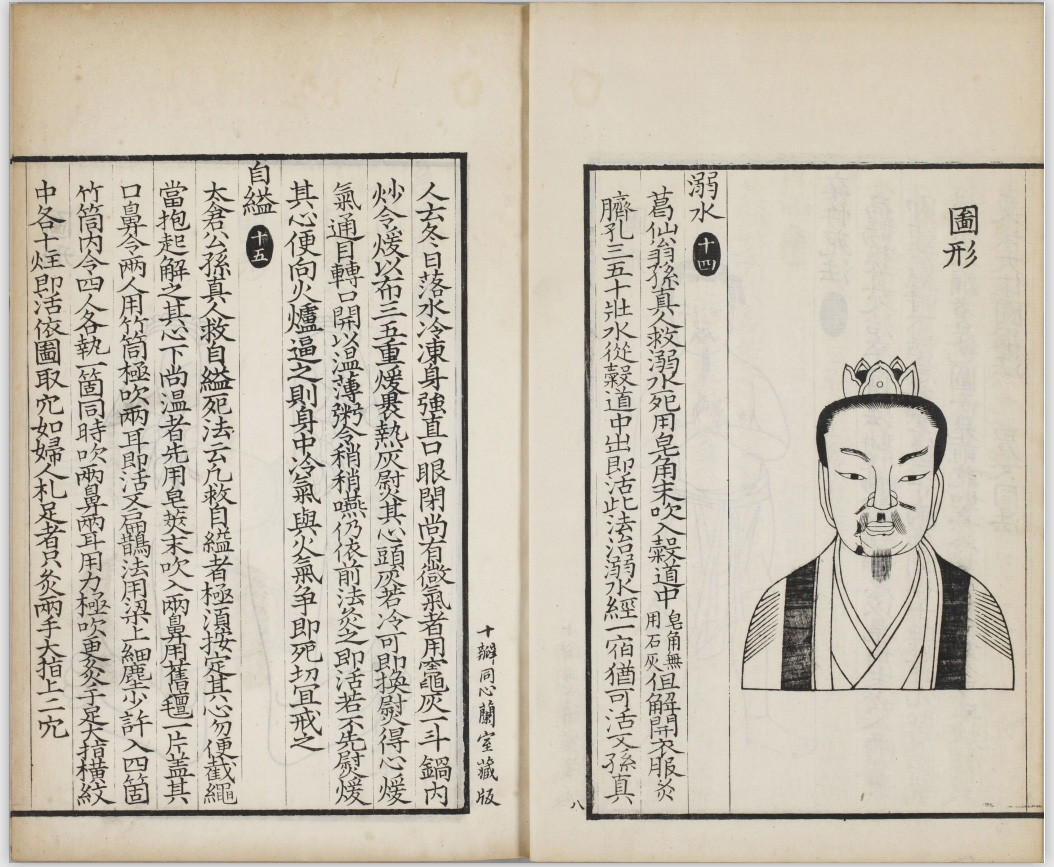 圖形
溺水 十四
葛仙翁孫真人救溺水死用皂角末吹入穀道中皂角無用石灰但解開衣服灸
臍孔三五十壯水從穀道中出即活此法治溺水經一宿猶可活又孫真
八
十瓣同心蘭室藏版
人云冬日落水冷凍身強直口眼閉尚有微氣者用竈灰一斗鍋內
炒令煖以布三五重煖裹熱灰熨其心頭灰若冷可即換熨得心煖
氣通目轉口開以溫薄粥令稍稍嚥仍依前法灸之即活若不先熨煖
其心便向火爐逼之則身中冷氣與火氣争即死切宜戒之
自縊 十五
太倉公孫真人救自縊死法云凢救自縊者極須按定其心勿便截繩
當抱起解之其心下尚温者先用皂莢末吹入兩鼻用舊氊一片盖其
口鼻令兩人用竹筒極吹兩耳即活又扁鵲法用梁上細塵少許入四箇
竹筒內令四人各執一箇同時吹兩鼻兩耳用力極吹更灸手足大指橫紋
中各七炷即活依圖取穴如婦人札足者只灸兩手大指上二穴